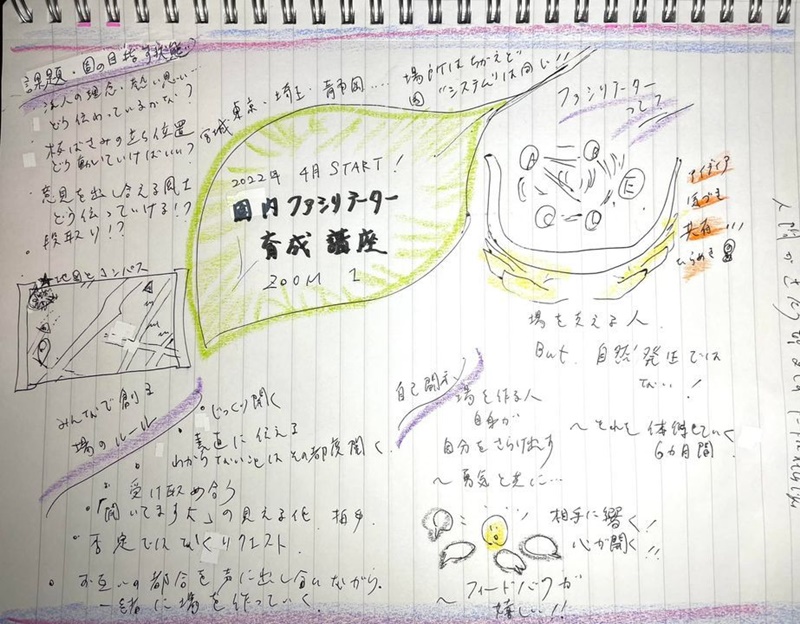 課題・園の目指す状態?
法人の理念・熱い思い…
どう伝わっているかな?
・板ばさみの立ち位置
どう動いていけばいい?
・意見を出し合える風土
どう伝っていける!?
段取り!?
宮城 東京・埼玉・青森
場所はちがえど
"システム"は同じ!!
2022年 4月START!
園内ファシリテーター
育成講座
ZOOM 1
ファシリテーター
って?
A B C D E
アイディア
気づき
共有…!!
ひらめき
場を支える人
But. 自然発生では
ない…!
〜それを体感していく
6ヵ月間.
★地図とコンパス
みんなで創る
場のルール
・じっくり聞く
・素直に伝える
わからないことはその都度聞く
・受け取め合う
・「聞いてますよ」の見える化 拍手.
・否定ではなくリクエスト.
・お互いの都合を声に出し合いながら.
一緒に場を作っていく.
自己開示
場を作る人
自身が
自分をさらけ出す
〜勇気と共に…
相手に響く!
心が開く!!
〜フィードバックが
嬉しい!!